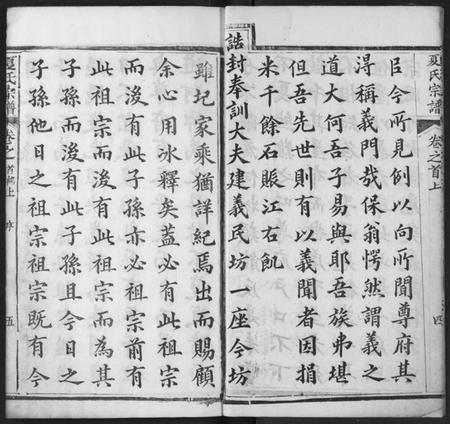 夏氏宗譜
卷之首上
四
臣今所見例以向所聞尊府其
淂稱義門哉保翁愕然謂義之
道大何吾子易與耶吾族弗堪
但吾先世則有以義聞者因捐
米千餘石賑江右飢
誥封奉訓大夫建義民坊一座今坊
雖圮家乘猶詳紀焉出而賜顧
余心用冰釋矣蓋必有此祖宗
而後有此子孫亦必祖宗前有
此祖宗而後有此子孫而為其
子孫而後有此子孫且今日之
子孫他日之祖宗祖宗既有今
夏氏宗譜
卷之首上
序
五